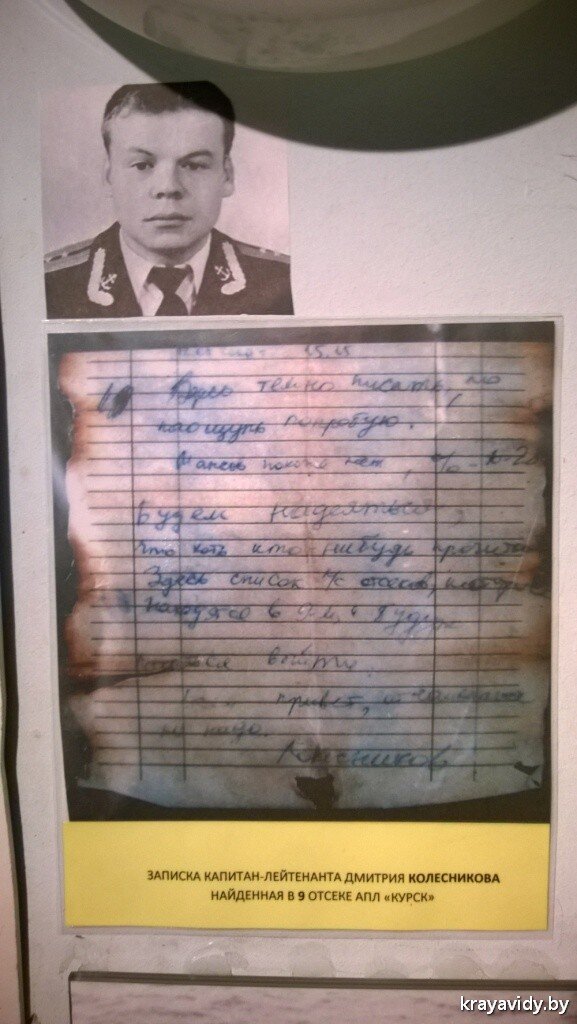 15.15
Здесь темно писать, но
наощупь попробую.
Шансов похоже нет, %
Будем надеяться,
что хоть кто-нибудь прочитает
Здесь список л/с отсеков, которые
находятся в 9-м и будут
выйти.
привет, отчаиваться
не надо.
Колесников
ЗАПИСКА КАПИТАН-ЛЕЙТЕНАНТА ДМИТРИЯ КОЛЕСНИКОВА
НАЙДЕННАЯ В 9 ОТСЕКЕ АПЛ «КУРСК»
krayavidy.by